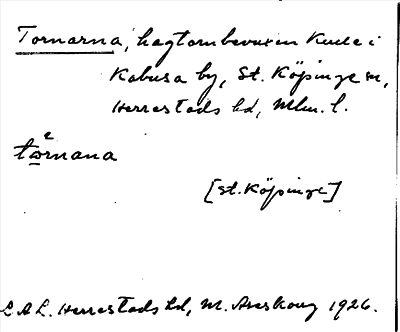 Tornarna, hagtornbevuxen kulle i
Kabusa by, St. Köpinge sn,
Herrestads hd, Mlm. l.
tɷ̀rnana
[St. Köpinge]
L A L. Herrestads hd, M. Areskoug 1926.